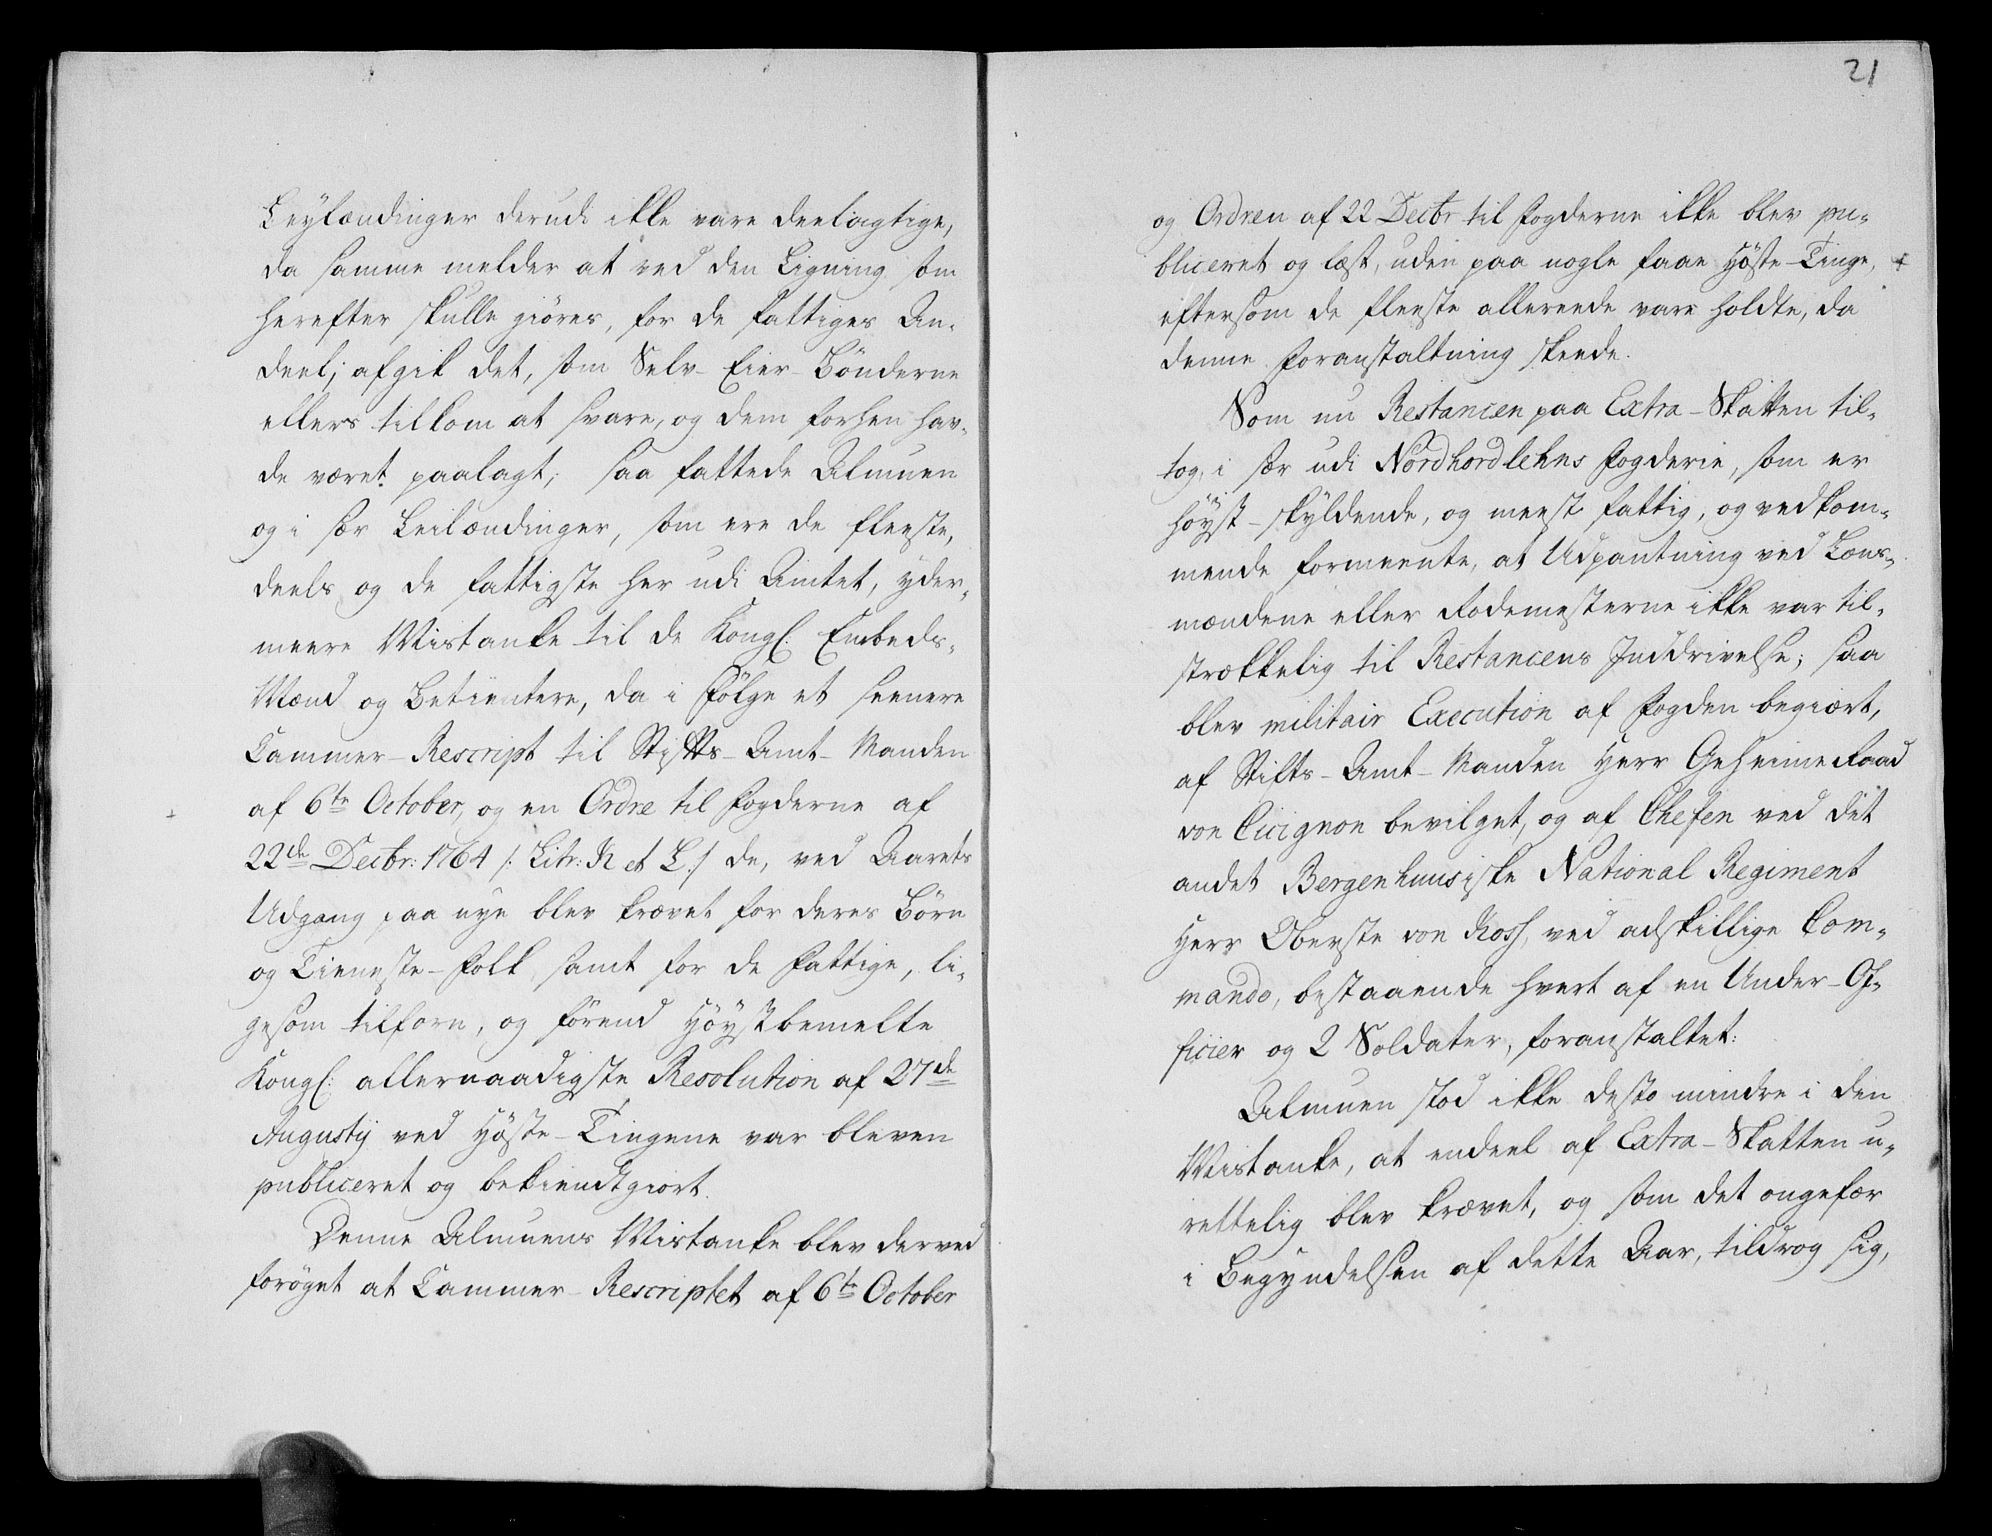 Leylændinger derudi ikke vare deelagtige,
da samme melder at ved den Ligning som
herefter skulle giöres, for de fattiges An-
deel; afgik det, som Selv-Eier-Bönderne
ellers tilkom at svare, og dem forhen hav-
de været paalagt; saa fattede Almuen
og i sær Leilændinger, som ere de fleeste,
deels og de fattigste her udi Amtet, yder-
meere Mistanke til de Kongl: Embeds-
Mænd og Betientere, da i Fölge et seenere
Cammer-Rescript til Stifts-Amt-Manden
af 6te October, og en Ordre til Fogderne af
22de Decbr: 1764 /: Litr: K et L :/ de, ved Aarets
Udgang paa nye blev krævet for deres Börn
og Tieneste-Folk, samt for de Fattige, li-
gesom tilforn, og förend Höystbemelte
Kongl: allernaadigste Resolution af 27de
Augustij ved Höste-Tingene var bleven
publiceret og bekiendtgiort.
Denne Almuens Mistanke blev derved
forögt at Cammer-Rescriptet af 6te October
21
og Ordren af 22 Decbr til Fogderne ikke blev pu-
bliceret og læst, uden paa nogle faae Höste-Tinge,
eftersom de fleeste allereede vare holdte, da
denne Foranstaltning skeede.
Som nu Restancen paa Extra-Skatten til-
tog, i sær udi Nordhordlehns Fogderie, som er
höyst-skyldende, og meest fattig, og vedkom-
mende formeente, at Udpantning ved Læns-
mændene eller Rodemesterne ikke var til-
strækkelig til Restancens Inddrivelse; saa
blev militair Execution af Fogden begiært,
af Stifts-Amt-Manden Herr Geheime Raad
von Cicignon bevilget, og af Chefen ved det
andet Bergenhuusiske National Regiment
Herr Oberste von Ross, ved adskillige Com-
mando, bestaaende hvert af en Under-Of-
ficier og 2 Soldater, foranstaltet:
Almuen stod ikke desto mindre i den
Mistanke, at endeel af Extra-Skatten u-
rettelig blev krævet, og som det ongefær
i Begyndelsen af dette Aar, tildrog sig,